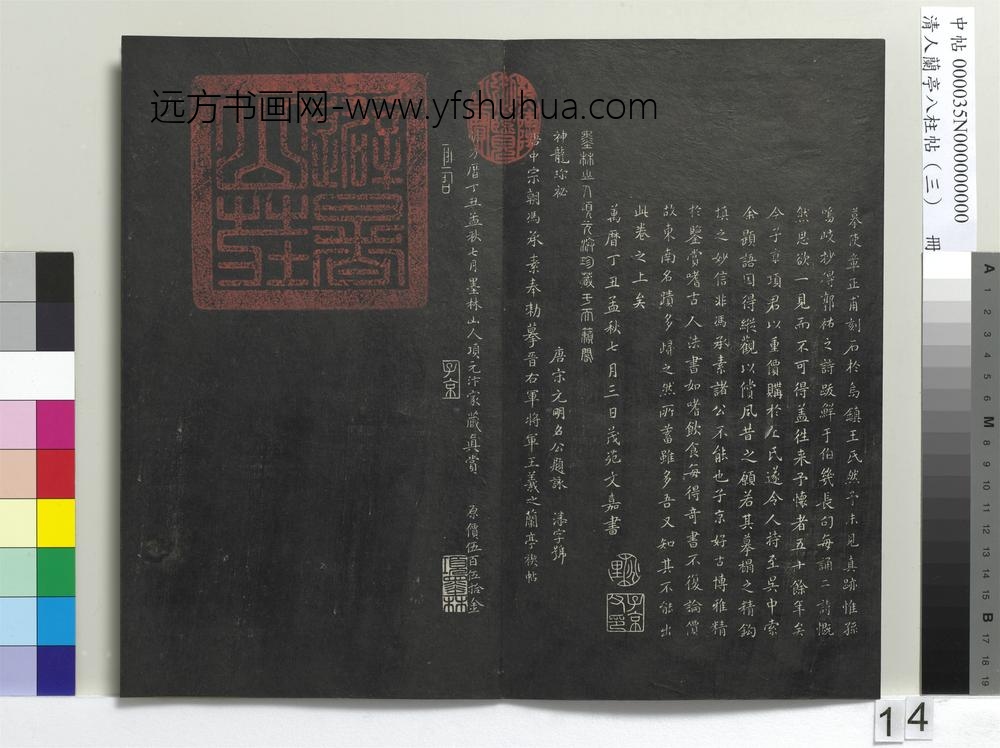 远方书画网-www.yfshuhua.com
中帖 000035N000000000
清人蘭亭八柱帖（三） 冊
摹使章正甫刻石於烏鎮王氏然予未見真跡惟孫
鳴岐抄得郭祐之詩跋鮮于伯幾長句每誦二詩慨
然思欲一見而不可得蓋往来予懷者五十餘年矣
今子京項君以重價購於王氏遂令人持至吳中索
余題語因得縱觀以償夙昔之願若其摹搨之精鈎
填之妙信非馮承素諸公不能也子京好古博雅精
於鑒賞嗜古人法書如嗜飲食每得奇書不復論價
故東南名蹟多歸之然所蓄雖多吾又知其不能出
此卷之上矣
萬曆丁丑孟秋七月三日茂苑文嘉書
子京
墨林山人項元汴珍藏于天籟閣
神龍珍祕
唐宋元明名公題詠 潘字號
唐中宗朝馮承素奉勑摹晉右軍將軍王羲之蘭亭禊帖
萬曆丁丑孟秋七月墨林山人項元汴家藏真賞 原價伍百伍拾金
子京
項墨林
A 1 2 3 4 5 6 M 8 9 10 11 12 13 14 15 B 17 18 19
14